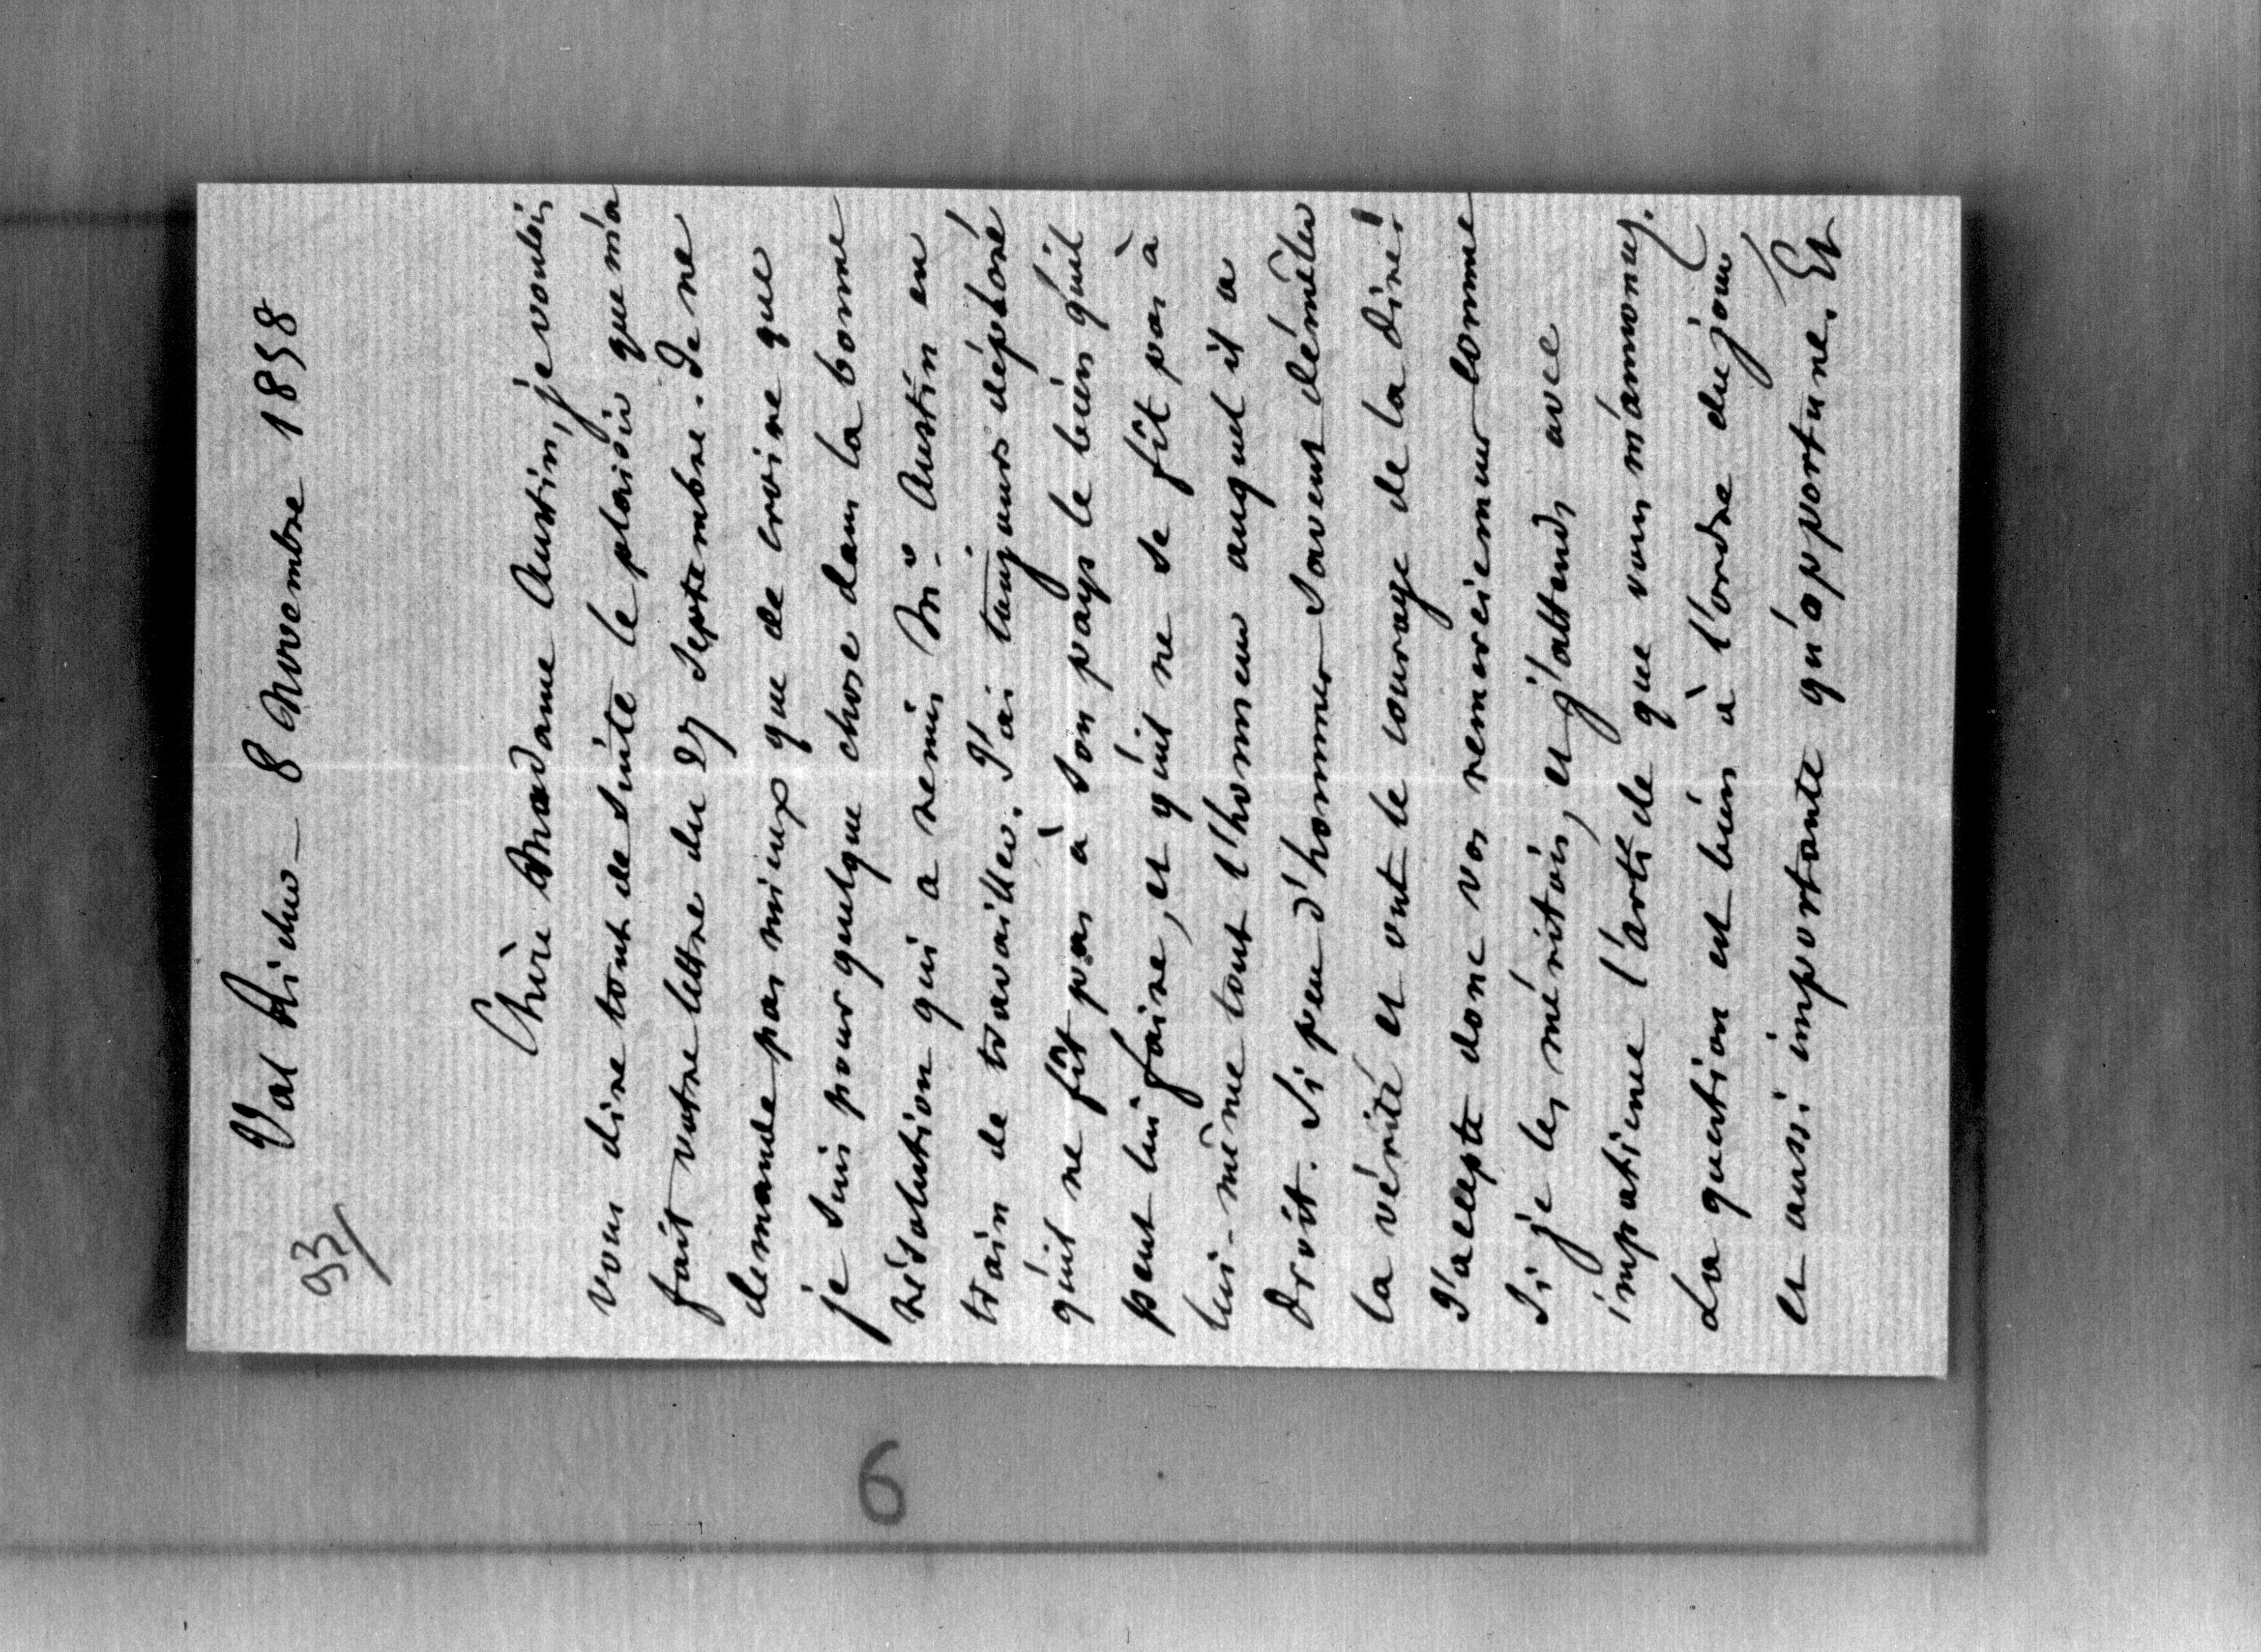 93/
Val Richer_ 8 Novembre 1858
Chère Madame Austin, je voulois
vous dire tout de suite le plaisir que m'a
fait votre lettre du 27 Septembre. Je ne
demande pas mieux que de croire que
je suis pour quelque chose dans la bonne
résolution qui a remis Mr. Austin en
train de travailler. J'ai toujours déploré
qu'il ne fît pas à son pays le bien qu'il
peut lui faire, et qu'il ne se fît pas à
lui-même tout l'honneur auquel il a
droit. Si peu d'hommes savent démêler
la vérité et ont le courage de la dire!
J'accepte donc vos remerciemens comme
si je les méritois, et j'attends avec
impatience l'article que vous m'annoncez.
La question est bien à l'ordre du jour
et aussi importante qu'opportune. Et
6